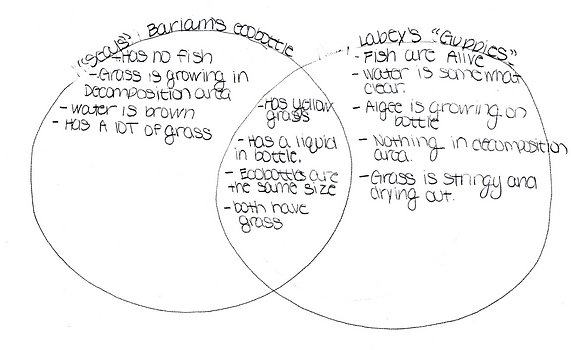 "Seals" Bariams ecobottle
-Has no fish
-Grass is growing in
Decomposition area
-Water is brown
-Has A lot of grass
-Has yellow
grass
-Has a liquid
in bottle.
-Ecobottles are
the same size
-both have
grass
Labex's "Guppies"
-Fish are Alive
-Water is somewhat
clear.
-Algee is growing on
bottle
-Nothing in decomposition
area.
-Grass is stringy and
drying out.